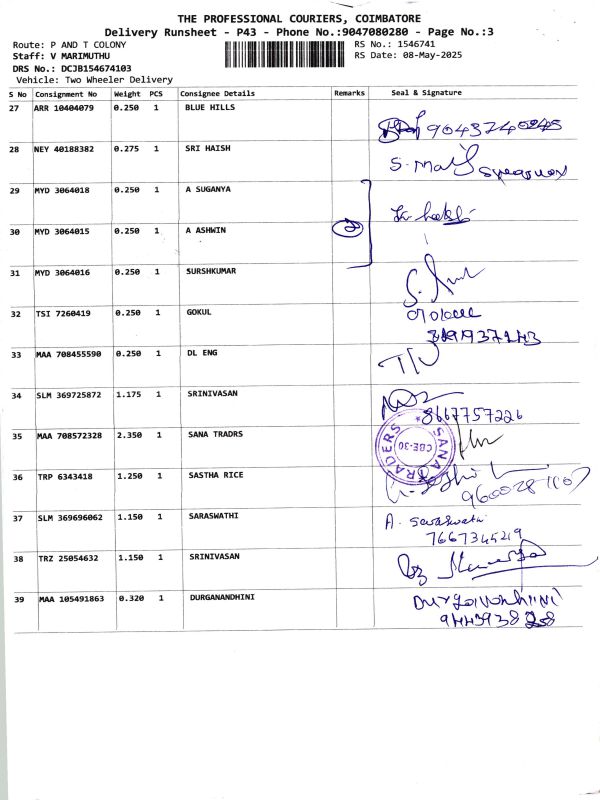 THE PROFESSIONAL COURIERS, COIMBATORE
Delivery Runsheet - P43 - Phone No.:9047080280 - Page No.:3
Route: P AND T COLONY RS No.: 1546741
Staff: V MARIMUTHU RS Date: 08-May-2025
DRS No.: DCJB154674103
Vehicle: Two Wheeler Delivery
S No Consignment No Weight PCS Consignee Details Remarks Seal & Signature
27 ARR 10404079 0.250 1 BLUE HILLS
28 NEY 40188382 0.275 1 SRI HAISH
29 MYD 3064018 0.250 1 A SUGANYA
30 MYD 3064015 0.250 1 A ASHWIN
31 MYD 3064016 0.250 1 SURSHKUMAR
32 TSI 7260419 0.250 1 GOKUL
33 MAA 708455590 0.250 1 DL ENG
34 SLM 369725872 1.175 1 SRINIVASAN
8667757226
35 MAA 708572328 2.350 1 SANA TRADRS
SANA TRADERS
CBE-30
36 TRP 6343418 1.250 1 SASTHA RICE
37 SLM 369696062 1.150 1 SARASWATHI
A. Saraswathi
7667345219
38 TRZ 25054632 1.150 1 SRINIVASAN
39 MAA 105491863 0.320 1 DURGANANDHINI